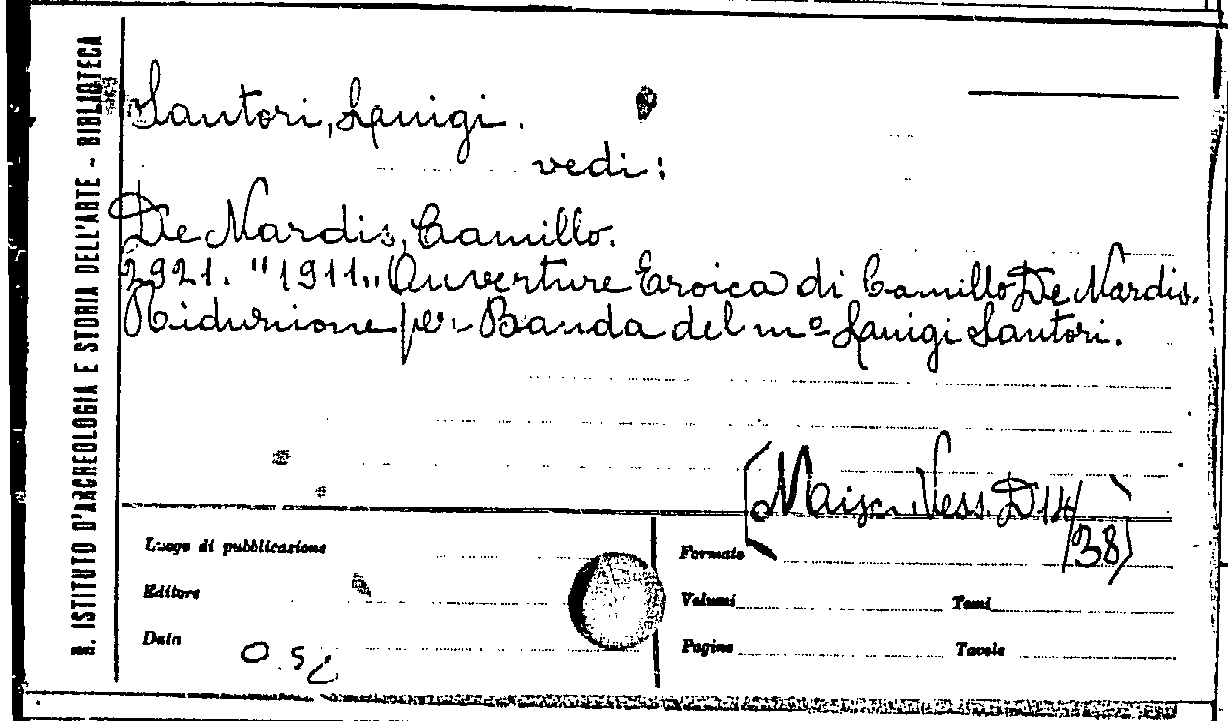 Santori, Luigi.
vedi:
De Nardis, Camillo.
2921. "1911" Ouverture Eroica di Camillo De Nardis.
Riduzione per Banda del mº Luigi Santori.
Vess. D 14/38
Luogo di pubblicazione
Formato
Editore
Volumi
Tomi
Data
Pagine
Tavole
ISTITUTO D'ARCHEOLOGIA E STORIA DELL'ARTE - BIBLIOTECA